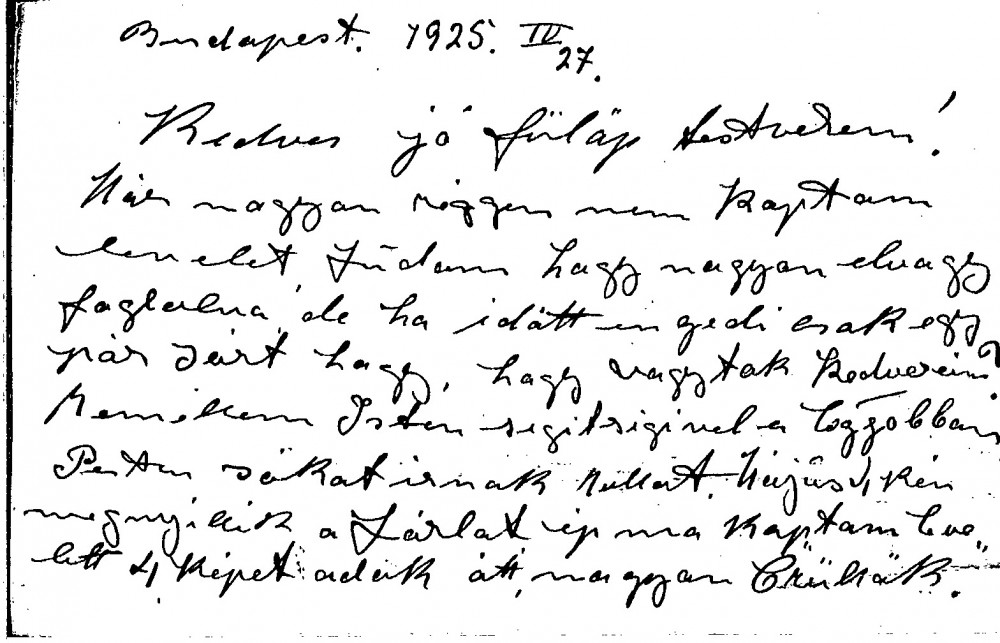 Budapest. 1925. IV
27.
Kedves jó fülöp testvérem!
Már nagyon régen nem kaptam
levelet, Túdom hogy nagyon elvagy
foglalva, de ha időtt engedi csak egy
pár sórt hogy, hogy vagytok kedveseim?
Isten segitségivel a legjobban
Pesten sokat irnak Május 4 kén
megnyilik a Tárlat ép ma kaptam leve-
lett 4 képet adok ått, nagyon örültök.